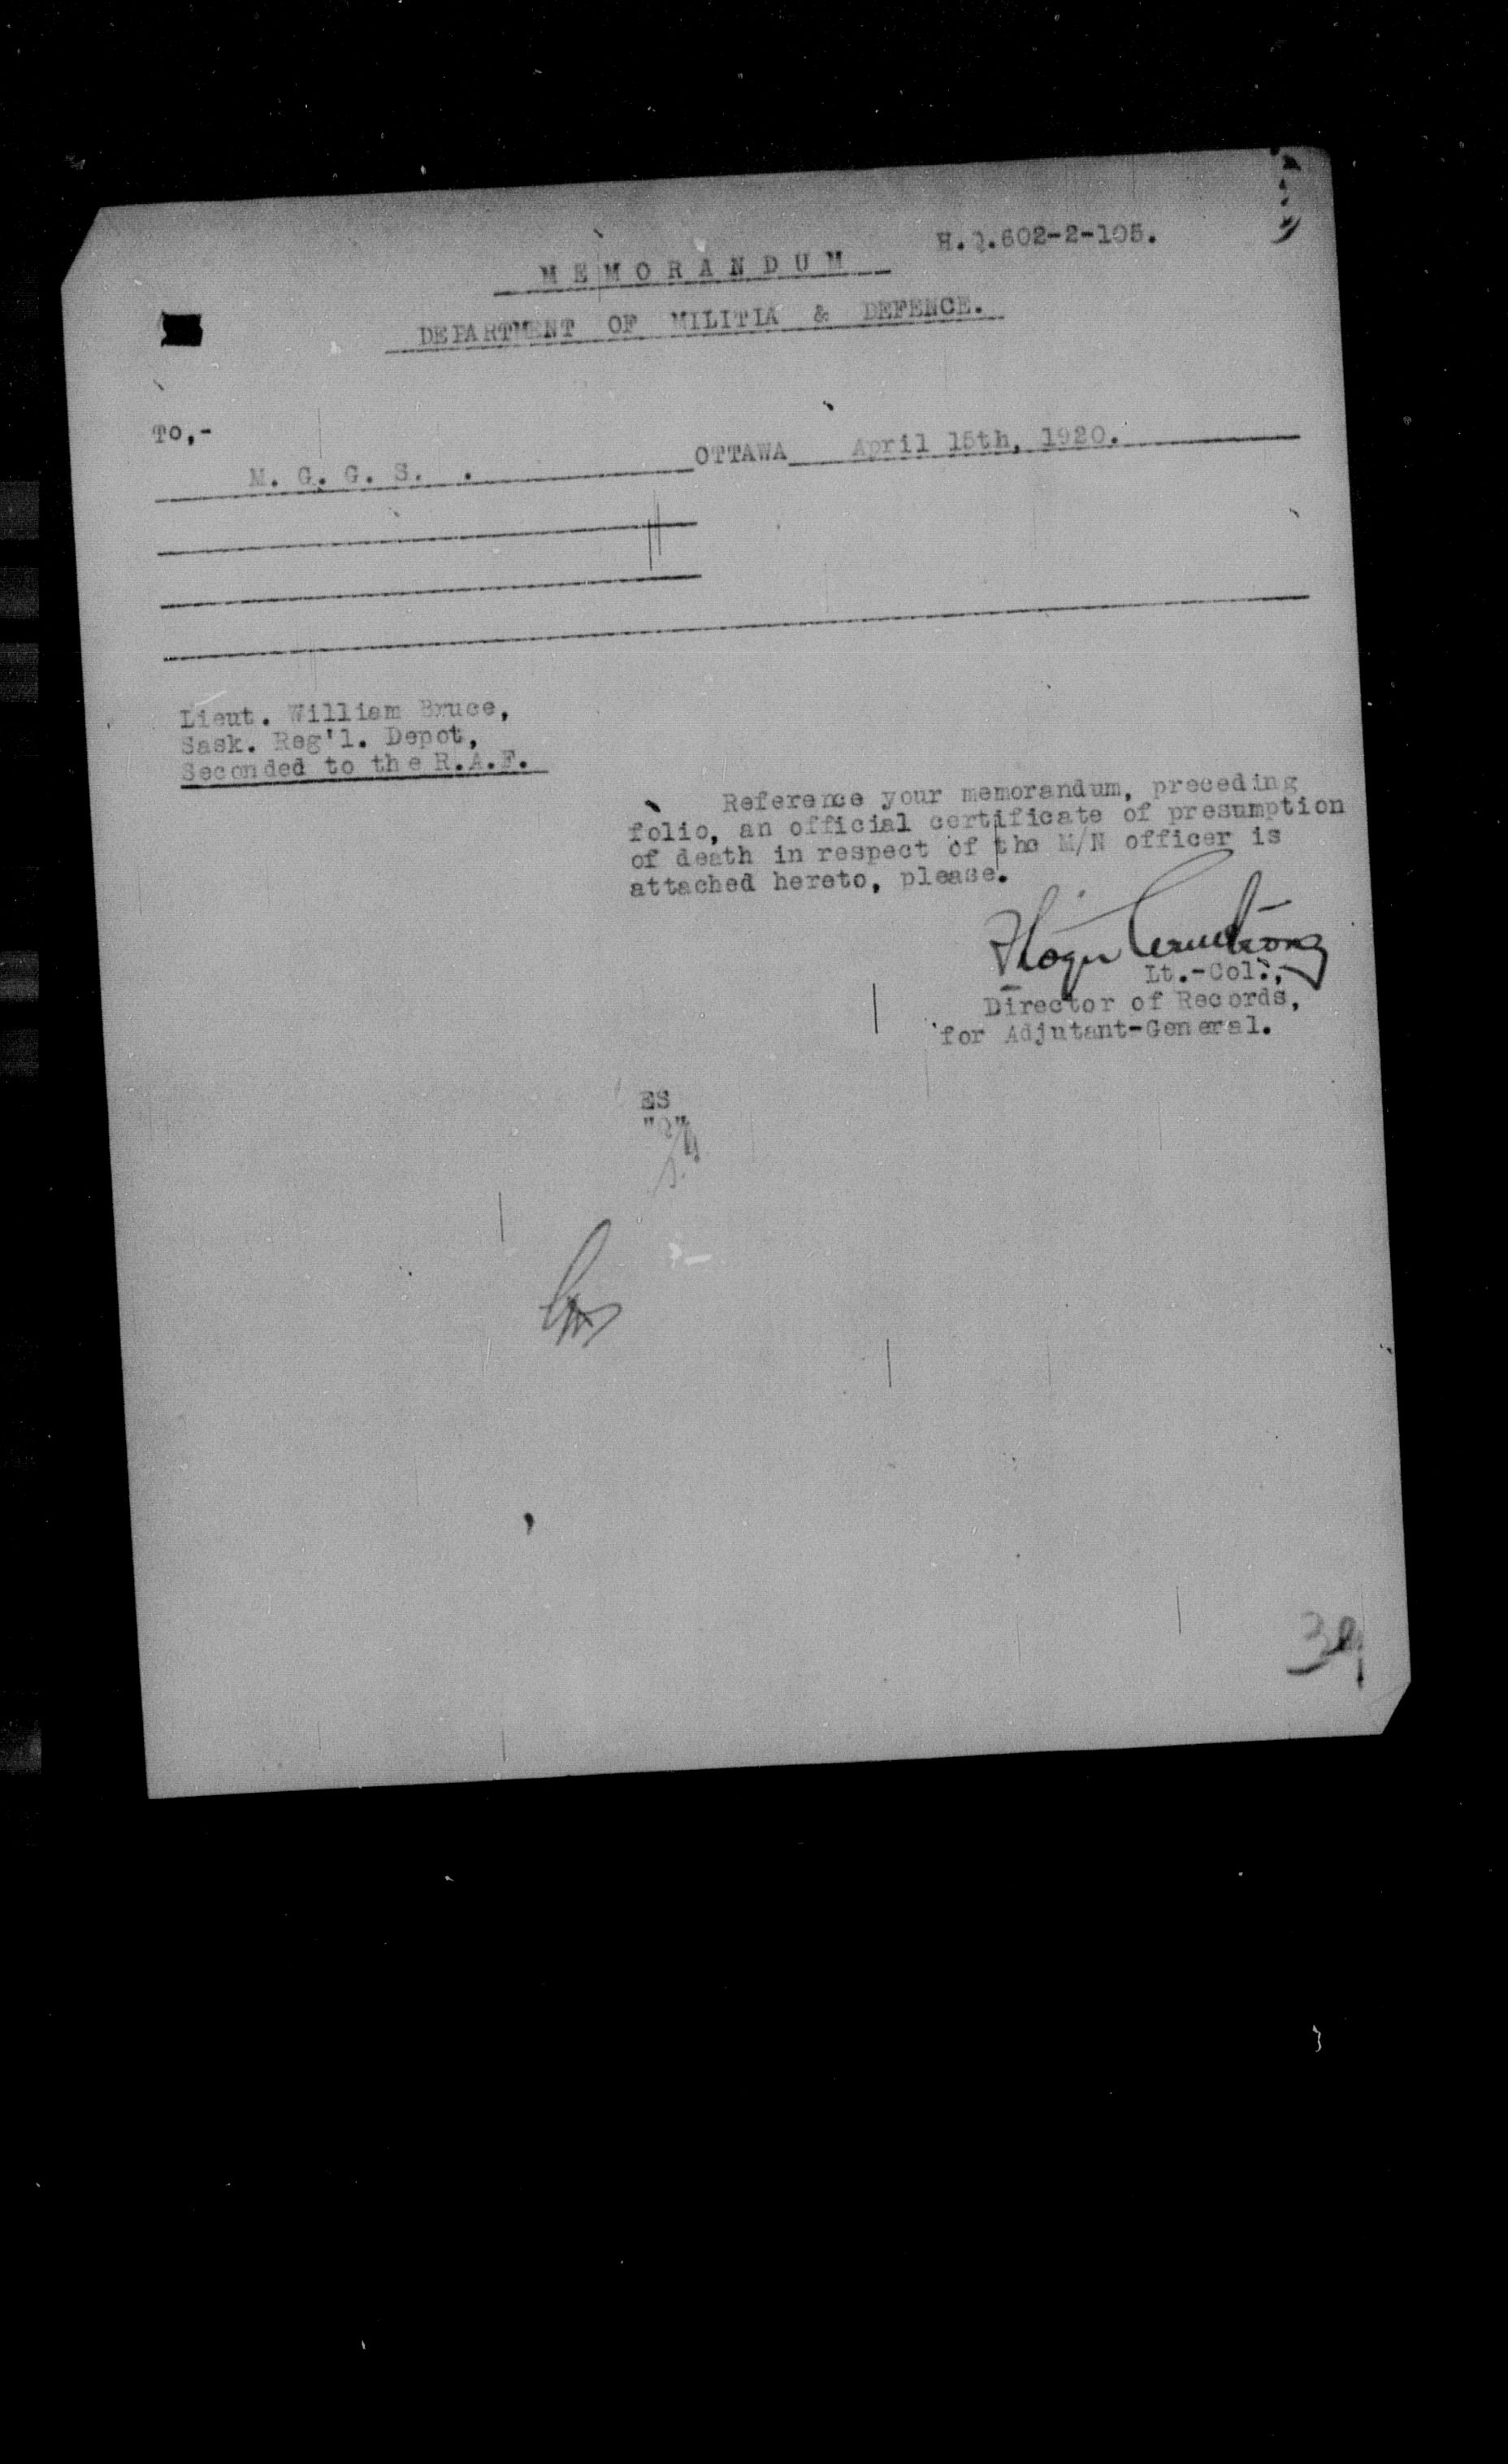 H.Q.602-2-105.
M E M O R A N D U M
DEPARTMENT OF MILITIA & DEFENCE.
To,-
M. G. G. S. .
OTTAWA April 15th, 1920.
Lieut. William Bruce,
Sask. Reg'l. Depot,
Seconded to the R.A.F.
Reference your memorandum, preceding
folio, an official certificate of presumption
of death in respect of the M/N officer is
attached hereto, please.
Armstrong
Lt.-Col.,
Director of Records,
for Adjutant-General.
ES
39